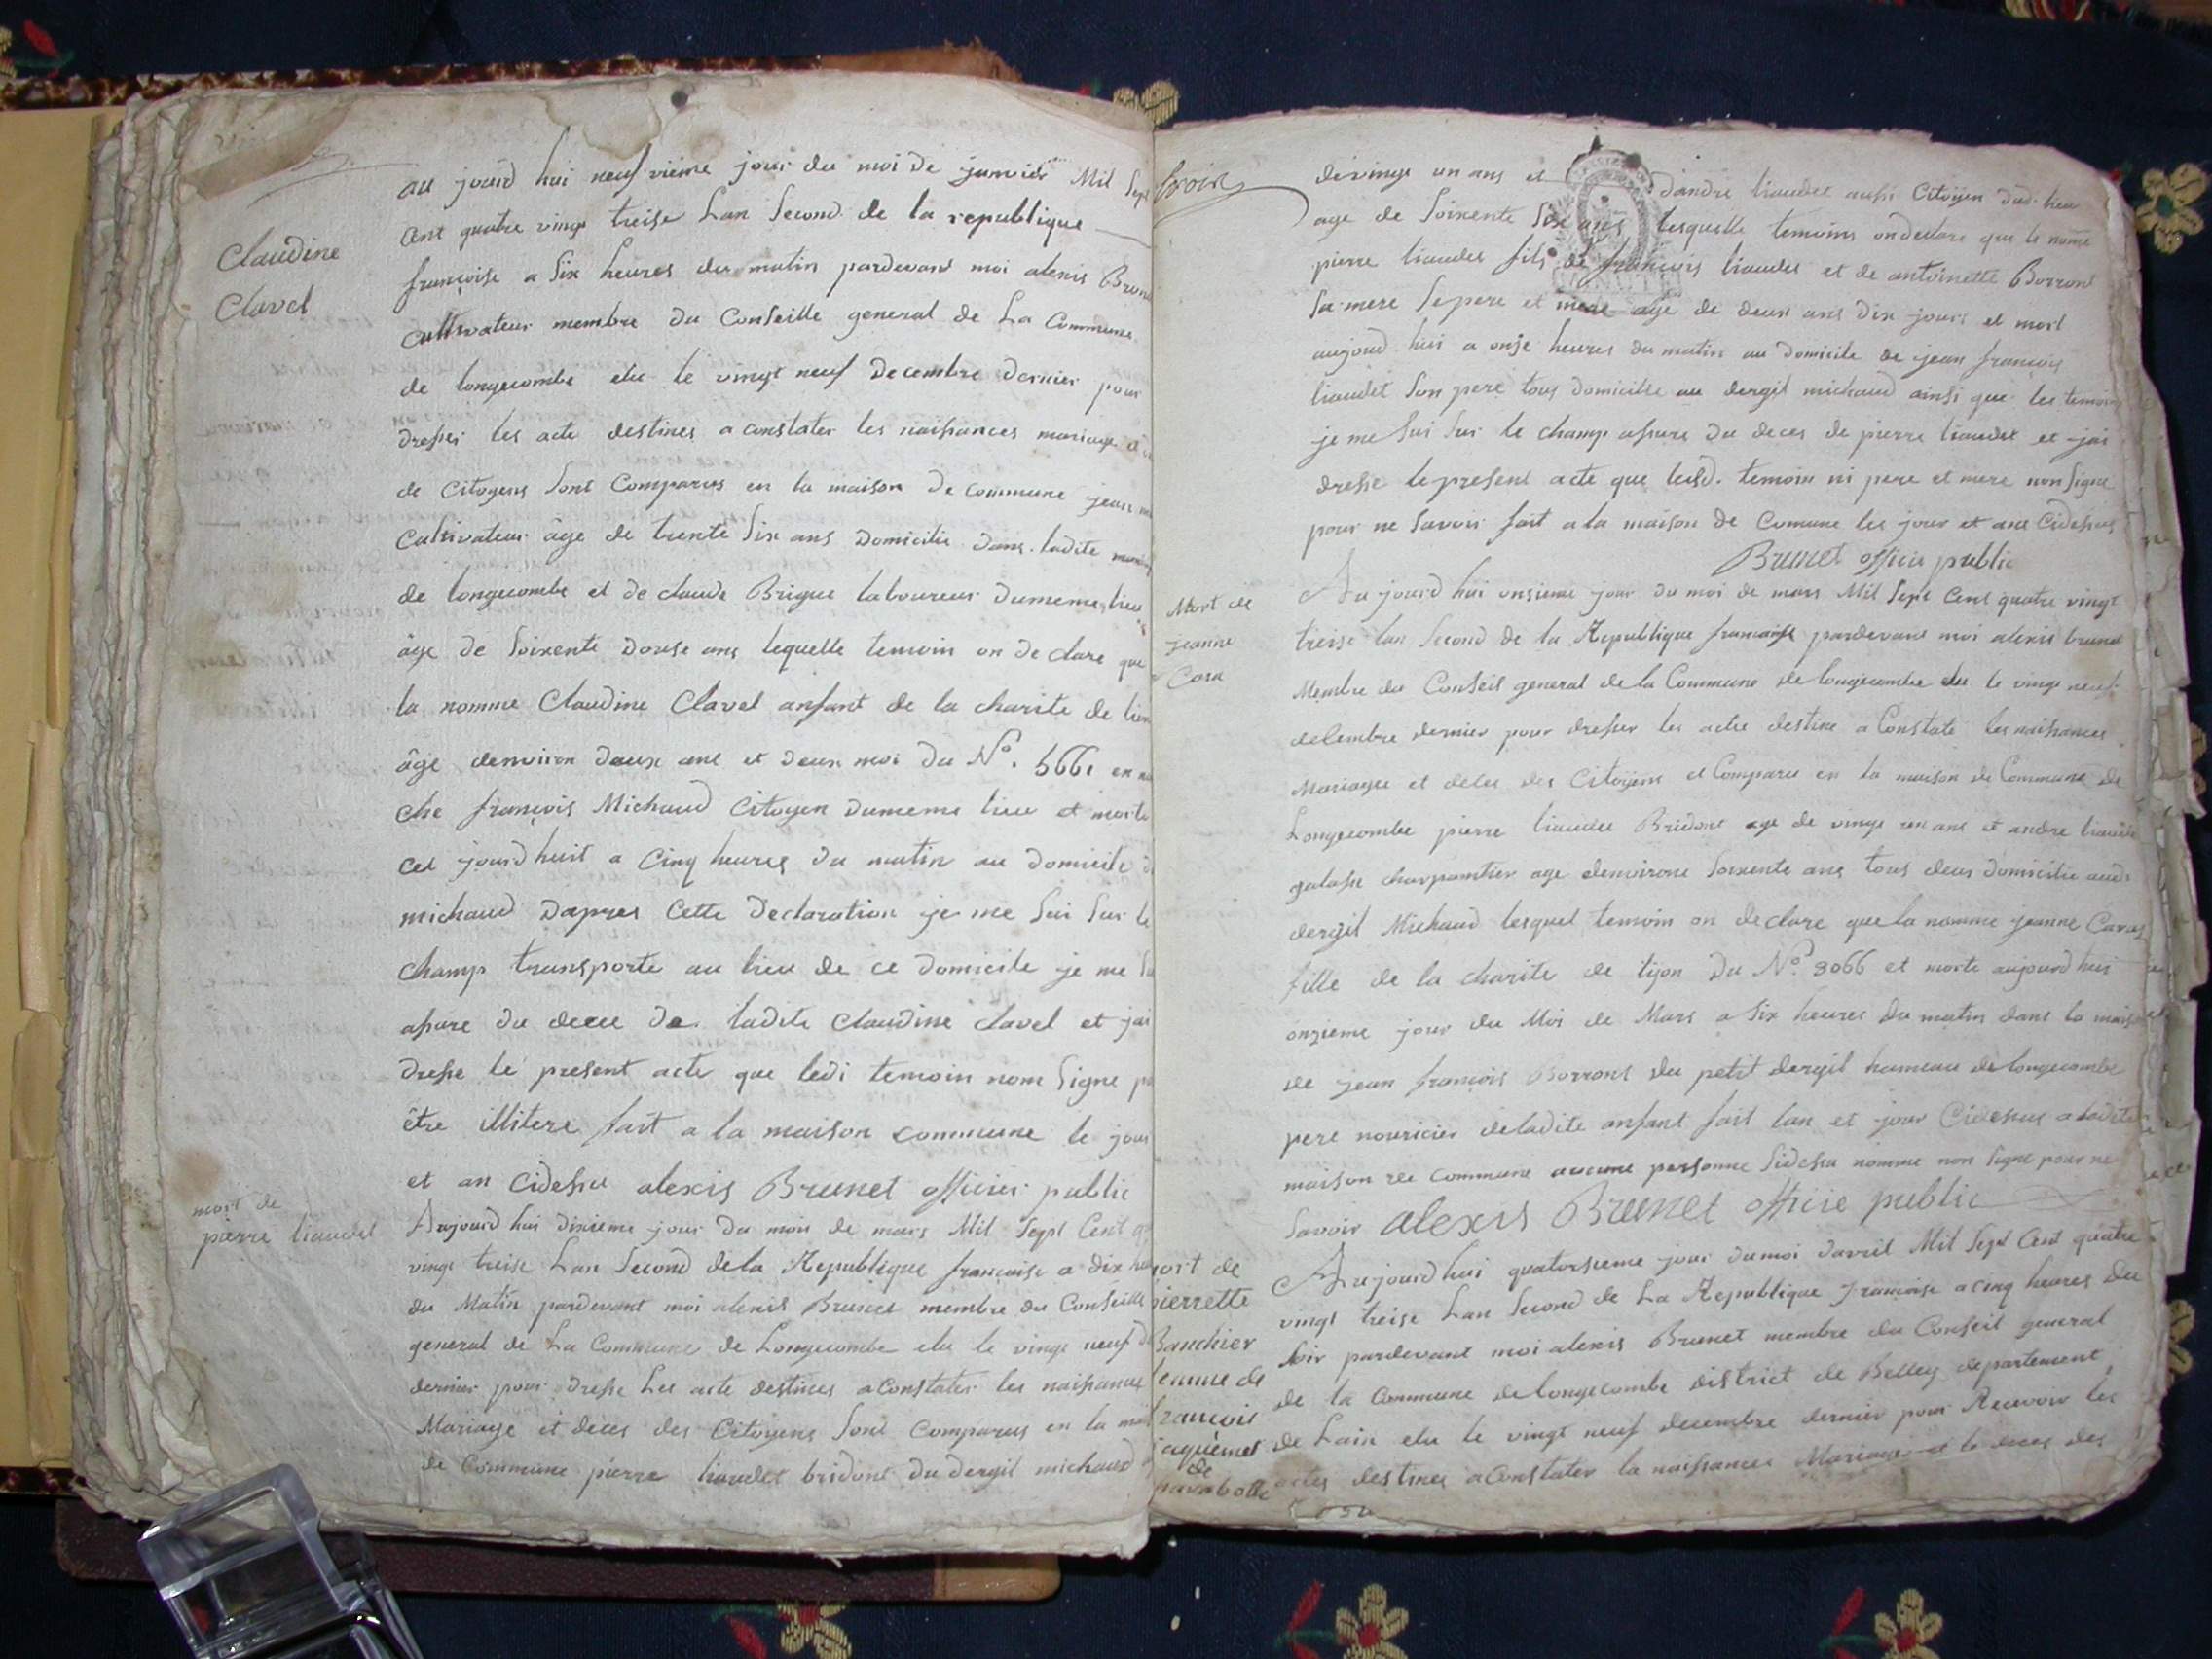 Claudine
Clavel
au jourd hui neuf vieme jour du moi de janvier Mil Sept
Cent quatre vingt treise Lan Second de la republique
françoise a Six heures du matin pardevand moi alexis Brun
cultivateur membre du Conseille general de La Commune
de longecombe elu le vingt neuf Decembre dernier pour
dresser les acte destines a constater les naissances mariage
de Citoyens Sont Comparus en la maison de commune jean
Cultivateur âge de trente Six ans Domicilie dans ladite
de longecombe et de claude Brigue laboureur Dumeme lieu
âge de Soixente Douse ans lequelle temoin on de clare que
la nomme Claudine Clavel anfant de la charite de
âge denviron deux ans et deux moi du N°. 5661 en
che françois Michaud Citoyen dumeme lieu et morte
cet jourdhuit a Cinq heures du matin au Domicile
michaud Dapres Cette Declaration je me Sui Sur le
champ transporte au lieu de ce Domicile je me
assure du dece de ladite Claudine Clavel et jai
dresse le present acte que ledi temoin nom Signe
être illitere fait a la maison commune le jour
et an cidessu alexis Brunet officier public
mort de
pierre liaudet
Aujourd hui dixieme jour du mois de mars Mil Sept Cent
vingt treise Lan Second dela Republique françoise a dix
du Matin pardevant moi alexis Brunet membre du Conseille
general de La Commune de Longecombe elu le vingt neuf
dernier pour dresse Les acte destines aConstater les naissances
Mariage et deces des Citoyens Sont Comparus en la
de Commune pierre liaudet bridont du dergit michaud
de vingt un ans et dandre liaudet aussi Citoyen dud. lieu
age de Soixente Six ans lesquelle temoins ondeclare que le nomé
pierre liaudet fils de françois liaudet et de antoinette Borront
Sa mere Sepere et mere age de deux ans dix jours et mort
aujourd hui a onze heures du matin au domicile de jean françois
liaudet Son pere tous domicille au dergit michaud ainsi que les temoins
je me Sui Sur le champ assure du deces de pierre liaudet et jai
dresse le present acte que lesd. temoin ni pere et mere non Signe
pour ne Savoir fait a la maison de Comune les jour et ans Cidessus
Brunet officie public
Mort de
jeanne
Aujourd hui onsieme jour du moi de mars Mil Sept Cent quatre vingt
treise lan Second de la Republique francaise pardevant moi alexis brunet
Membre du Conseil general de la Commune de longecombe elu le vingt neuf
decembre dernier pour dresser les actes destine a Constate les naissances
Mariages et deces des Citoyens et Comparu en la maison de Commune de
Longecombe pierre liaudet Bridont age de vingt un ans et andre liaudet
charpantier age denvirons Soixente ans tous deux domicilie aud.
dergit Michaud lesquel temoin on declare que la nomme jeanne
fille de la charite de lijon du N°. 3066 et morte aujourd hui
onzieme jour du Moi de Mars a Six heures du matin dans la maison
de jean françois Borront du petit dergit hameau de longecombe
pere nouricier deladite anfant fait lan et jour Cidessus a ladite
maison de Commune aucune personne Sidessu nomme non Signe pour ne
Savoir alexis Brunet officie public
mort de
pierrette
Banchier
femme de
francois
jaquemet
de
Aujourd hui quatorsieme jour dumoi davril Mil Sept Cent quatre
vingt treise Lan Second de La Republique françoise a cinq heures du
Soir pardevant moi alexis Brunet membre du Conseil general
de la Commune de longecombe district de Belley departement
de Lain elu le vingt neuf decembre dernier pour Recevoir les
actes destines aConstater la naissances Mariage et le deces des